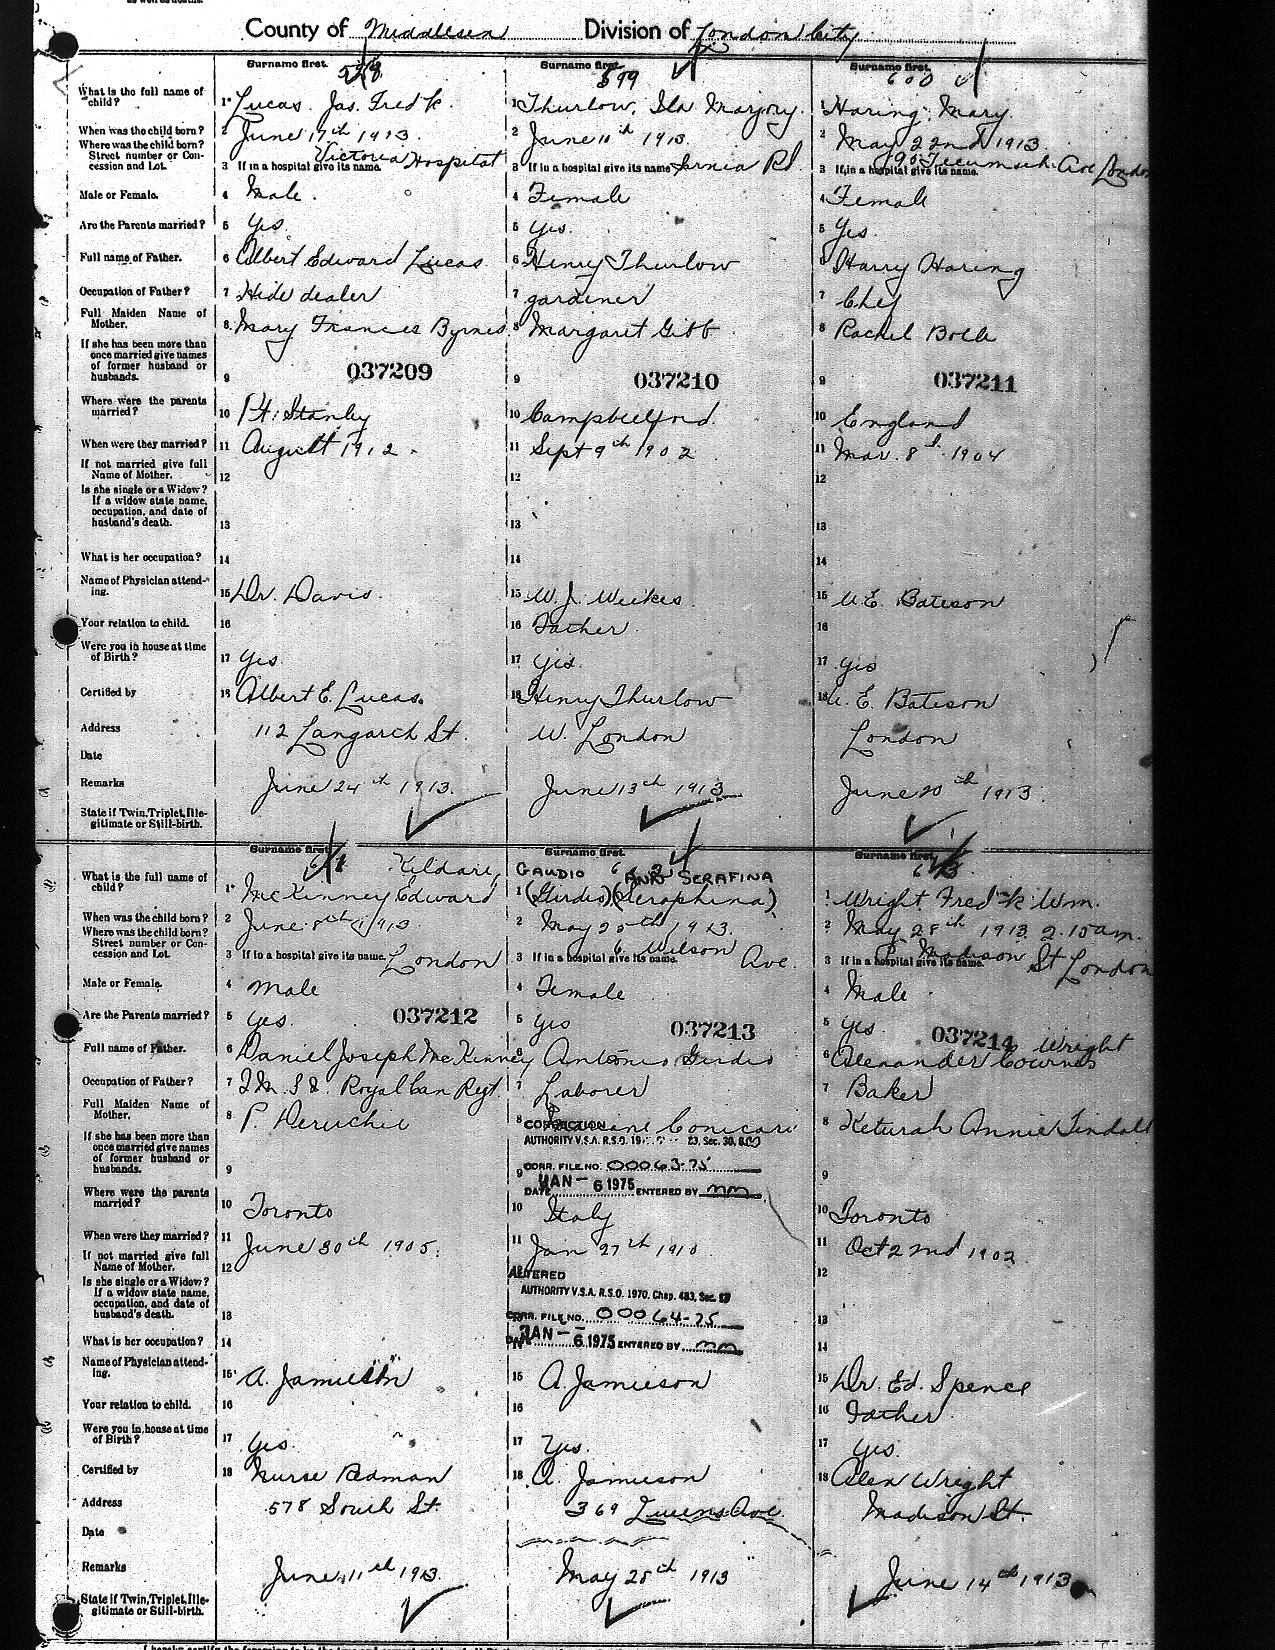 as well as deaths.
County of Middlesex Division of London City
Surname first. Surname first. 599 Surname first. 600
What is the full name of child? 1 Lucas. Jas. Fredk. 1 Thurlow, Ila Marjory. 1 Haring: Mary.
When was the child born? 2 June 17th 1913. 2 June 11th 1913. 2 May 22nd 1913
Where was the child born? Street number or Concession and Lot. 3 If in a hospital give its name. Victoria Hospital 3 If in a hospital give its name Sarnia Rd 3 If in a hospital give its name. 90 Tecumseh Ave London
Male or Female. 4 Male. 4 Female 4 Female
Are the Parents married? 5 Yes. 5 Yes. 5 Yes.
Full name of Father. 6 Albert Edward Lucas 6 Henry Thurlow 6 Harry Haring
Occupation of Father? 7 Hide dealer 7 gardiner 7 Chef
Full Maiden Name of Mother. 8 Mary Frances Byrnes 8 Margaret Gibb 8 Rachel Bolle
If she has been more than once married give names of former husband or husbands. 9 037209 9 037210 9 037211
Where were the parents married? 10 Pt. Stanley 10 Campbellford. 10 England
When were they married? 11 August 1912. 11 Sept 9th 1902 11 Mar. 8th 1904
If not married give full Name of Mother. 12 12 12
Is she single or a Widow? If a widow state name, occupation, and date of husband's death. 13 13 13
What is her occupation? 14 14 14
Name of Physician attending. 15 Dr. Davis. 15 W. J. Weekes. 15 U. E. Bateson
Your relation to child. 16 16 Father 16
Were you in house at time of Birth? 17 Yes. 17 Yes. 17 Yes
Certified by 18 Albert E. Lucas. 18 Henry Thurlow 18 U. E. Bateson
Address 112 Langarth St. W. London London
Date
Remarks June 24th 1913. June 13th 1913 June 20th 1913.
State if Twin, Triplet, Illegitimate or Still-birth.
Surname first Surname first. Surname first.
Kildare GAUDIO ANN SERAFINA
What is the full name of child? 1 McKinney Edward 1 (Girdio) (Seraphina) 1 Wright Fred-k Wm.
When was the child born? 2 June 8th 1913 2 May 25th 1913. 2 May 28th 1913 2.10 am.
Where was the child born? Street number or Concession and Lot. 3 If in a hospital give its name. London 3 If in a hospital give its name. 6 Wilson Ave. 3 If in a hospital give its name. Madison St London
Male or Female. 4 Male 4 Female 4 Male
Are the Parents married? 5 Yes. 037212 5 Yes 037213 5 Yes. 037214
Full name of Father. 6 Daniel Joseph McKinney 6 Antonio Girdio 6 Alexander Wright
Occupation of Father? 7 Q.M.S. Royal Can Regt. 7 Laborer 7 Baker
Full Maiden Name of Mother. 8 P. Deruchie 8 8 Keturah Annie Tindall
CORRECTION
AUTHORITY V.S.A. R.S.O. 19
If she has been more than once married give names of former husband or husbands. 9 9 CORR. FILE NO. 00063-75 9
DATE JAN - 6 1975 ENTERED BY mm
Where were the parents married? 10 Toronto 10 Italy 10 Toronto
When were they married? 11 June 30th 1905. 11 Jan 27th 1910 11 Oct 2nd 1902
If not married give full Name of Mother. 12 12
ALTERED
Is she single or a Widow? If a widow state name, occupation, and date of husband's death. 13 AUTHORITY V.S.A. R.S.O. 1970. Chap. 483, Sec. 13
CORR. FILE NO. 00064-75
What is her occupation? 14 JAN - 6 1975 ENTERED BY mm 14
Name of Physician attending. 15 A. Jamieson 15 A. Jamieson 15 Dr. Ed. Spence
Your relation to child. 16 16 16 Father
Were you in house at time of Birth? 17 Yes. 17 Yes. 17 Yes.
Certified by 18 Nurse Redman 18 A. Jamieson 18 Alex Wright
Address 578 South St. 369 Queens Ave. Madison St.
Date
Remarks June 11th 1913. May 28th 1913 June 14th 1913
State if Twin, Triplet, Illegitimate or Still-birth.